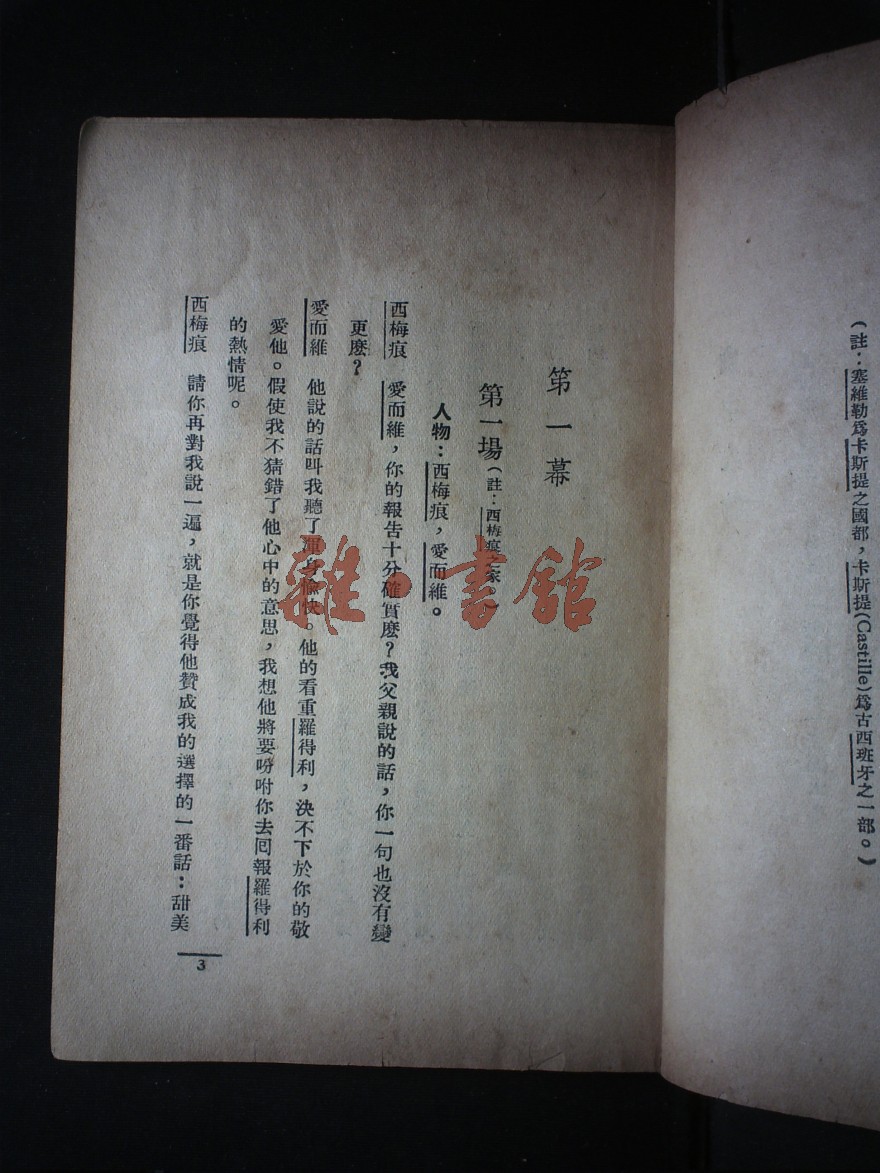 (註：塞維勒爲卡斯提之國都，卡斯提(Castille)爲古西班牙之一部。)
第一幕
第一場(註：西梅痕之家)
人物：西梅痕，愛而維。
西梅痕　愛而維，你的報告十分確實麽？我父親說的話，你一句也沒有變
更麽？
愛而維　他說的話叫我聽了渾身愉快。他的看重羅得利，決不下於你的敬
愛他。假使我不猜錯了他心中的意思，我想他將要吩咐你去囘報羅得利
的熱情呢。
西梅痕　請你再對我說一遍，就是你覺得他贊成我的選擇的一番話：甜美
3
雜·書館